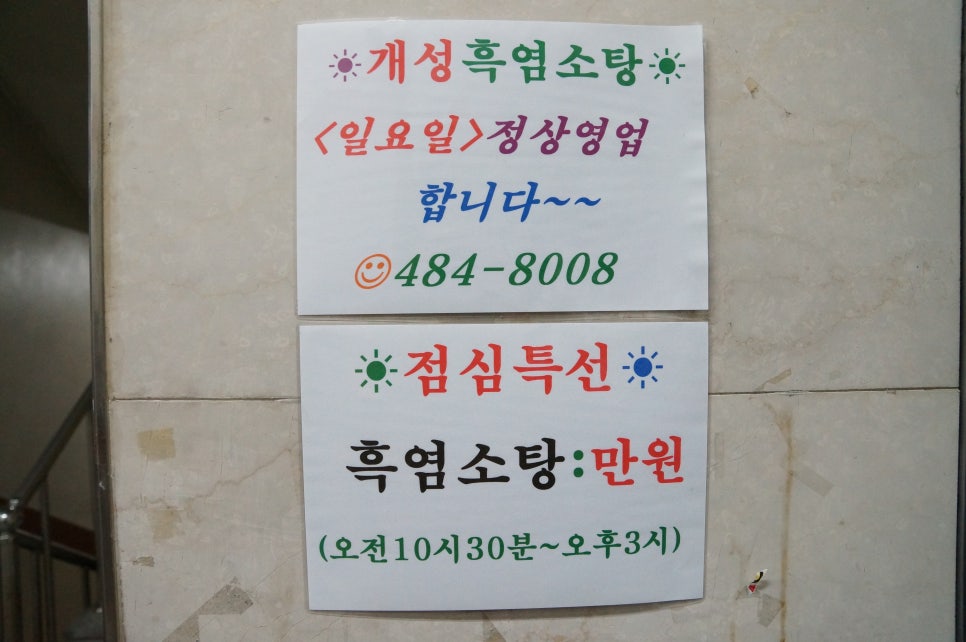 개성흑염소탕
<일요일>정상영업
합니다~~
484-8008
점심특선
흑염소탕:만원
(오전10시30분~오후3시)